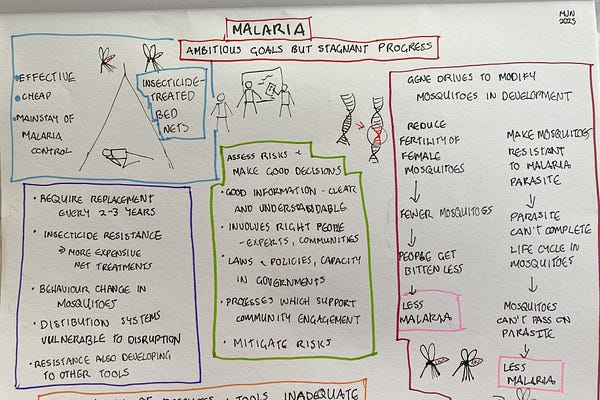 MJN
2025
MALARIA
AMBITIOUS GOALS BUT STAGNANT PROGRESS
• EFFECTIVE
• CHEAP
• MAINSTAY OF
MALARIA
CONTROL
INSECTICIDE-
TREATED
BED
NETS
• REQUIRE REPLACEMENT
EVERY 2-3 YEARS
• INSECTICIDE RESISTANCE
⇒ MORE EXPENSIVE
NET TREATMENTS
• BEHAVIOUR CHANGE IN
MOSQUITOES
• DISTIBUTION SYSTEMS
VULNERABLE TO DISRUPTION
• RESISTANCE ALSO DEVELOPING
TO OTHER TOOLS
ASSESS RISKS &
MAKE GOOD DECISIONS
• GOOD INFORMATION - CLEAR
AND UNDERSTANDABLE
• INVOLVES RIGHT PEOPLE
- EXPERTS, COMMUNITIES
• LAWS & POLICIES, CAPACITY
IN GOVERNMENTS
• PROCESSES WHICH SUPPORT
COMMUNITY ENGAGEMENT
• MITIGATE RISKS
GENE DRIVES TO MODIFY
MOSQUITOES IN DEVELOPMENT
REDUCE
FERTILITY OF
FEMALE
MOSQUITOES
↓
FEWER MOSQUITOES
↓
PEOPLE GET
BITTEN LESS
↓
LESS
MALARIA
MAKE MOSQUITOES
RESISTANT
TO MALARIA
PARASITE
↓
PARASITE
CAN'T COMPLETE
LIFE CYCLE IN
MOSQUITOES
↓
MOSQUITOES
CAN'T PASS ON
PARASITE
↓
LESS
MALARIA
TOOLS INADEQUATE